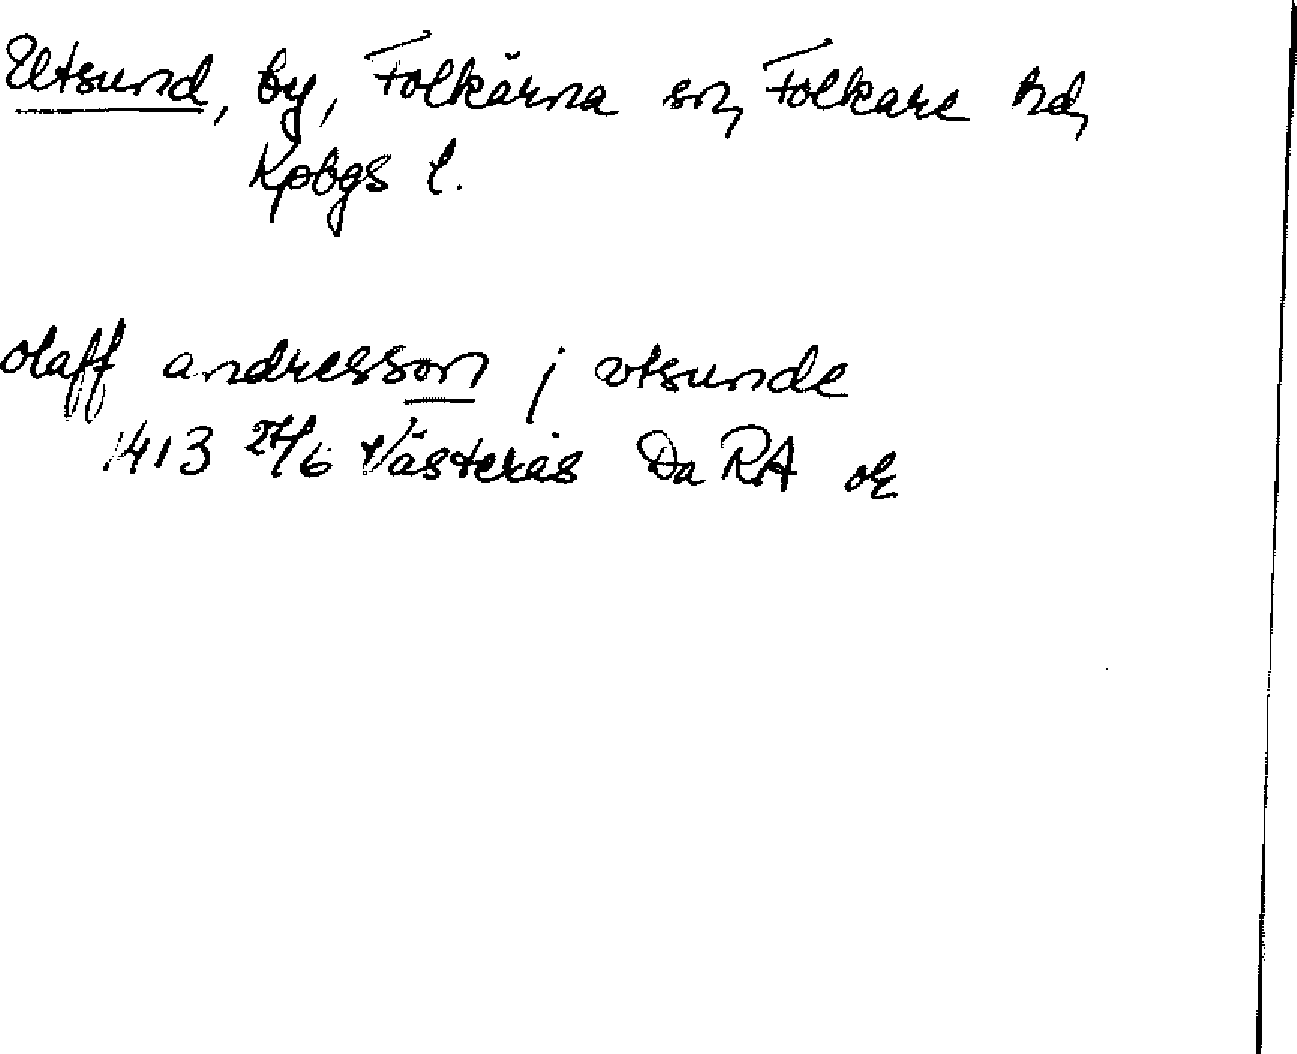 Utsund, by, Folkärna sn, Folkare hd,
Kpbgs l.
olaff andresson j vtsunde
1413 24/6 Västerås Da RA or